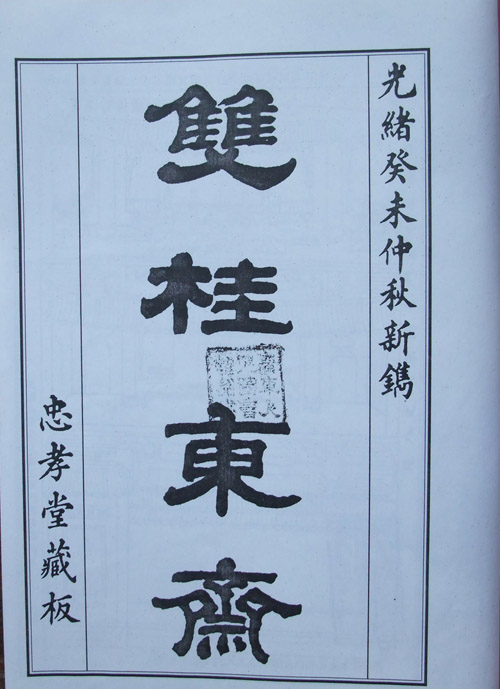 光緒癸未仲秋新鐫
雙桂東齋
忠孝堂藏板